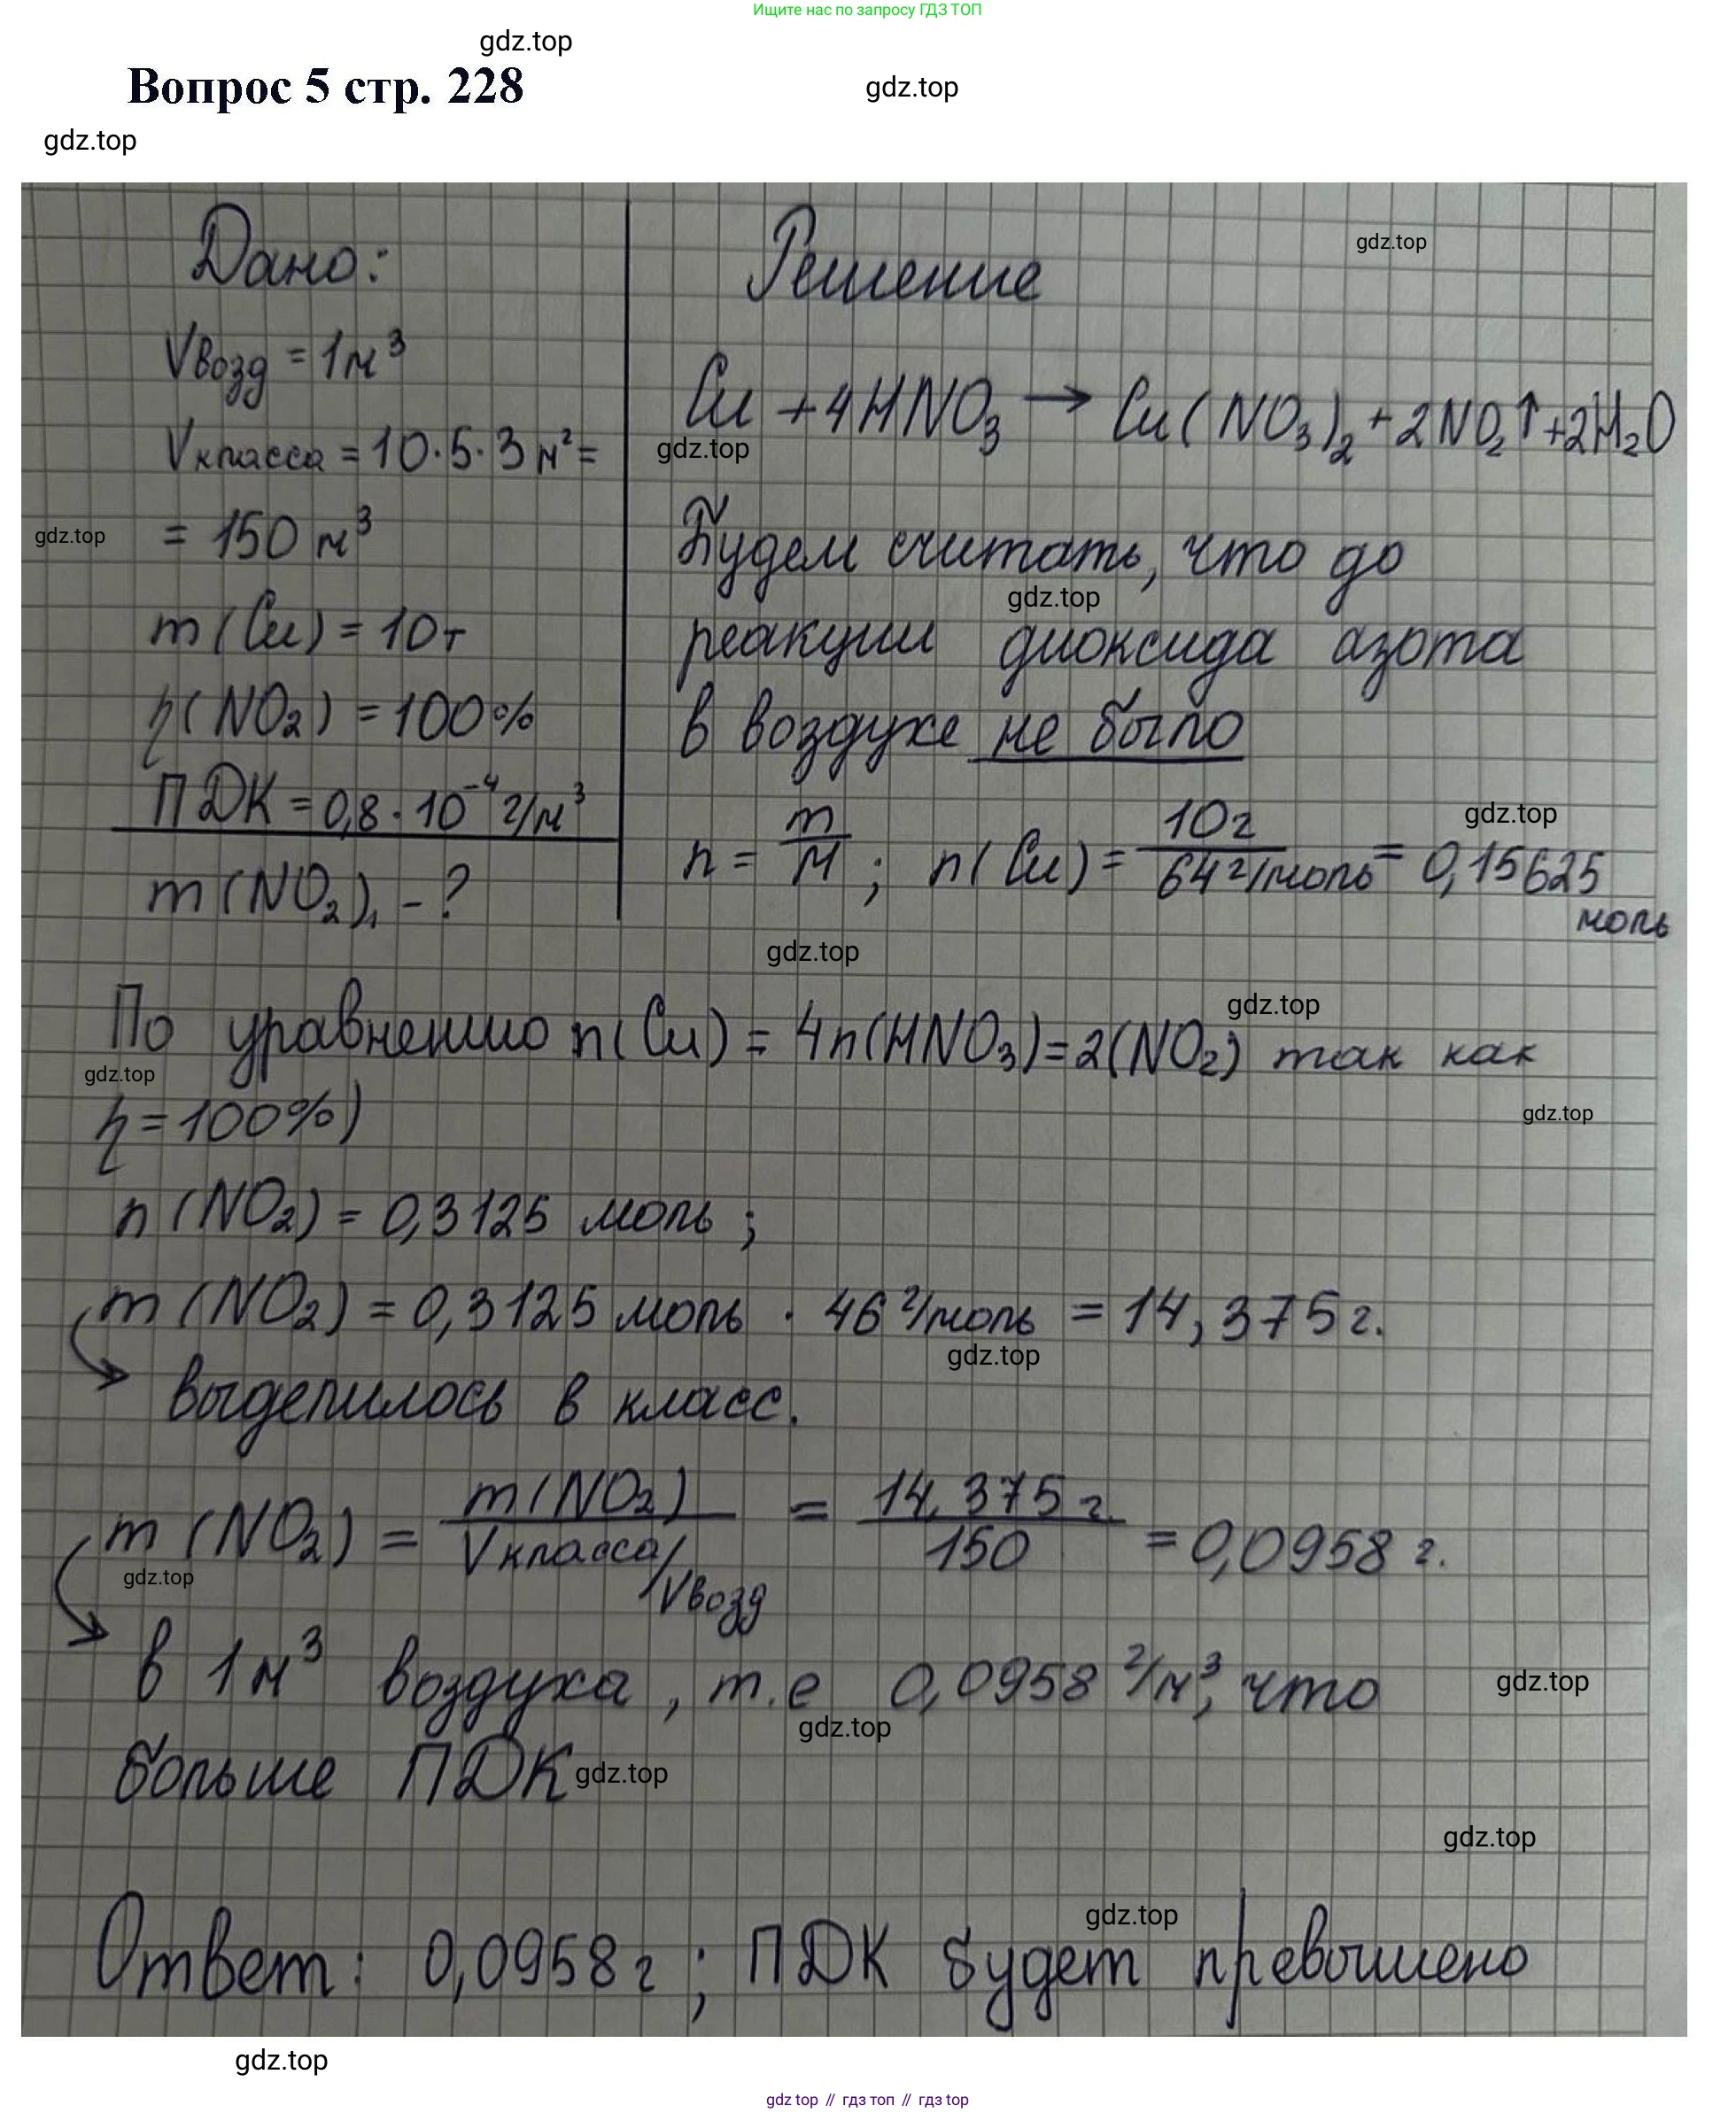 Ищите нас по запросу ГДЗ ТОП
gdz.top
Вопрос 5 стр. 228
gdz.top
gdz.top
Дано:
Vвозд = 1м³
Vкласса = 10·5·3 м² =
= 150 м³
gdz.top
m(Cu) = 10г
η(NO₂) = 100%
ПДК = 0,8·10⁻⁴ г/м³
m(NO₂)₁ - ?
Решение
gdz.top
Cu + 4HNO₃ → Cu(NO₃)₂ + 2NO₂↑ + 2H₂O
gdz.top
Будем считать, что до
gdz.top
реакции диоксида азота
в воздухе не было
gdz.top
n = m/M ; n(Cu) = 10г/64г/моль = 0,15625
моль
gdz.top
gdz.top
По уравнению n(Cu) = 4n(HNO₃) = 2(NO₂) так как
gdz.top
η = 100%)
gdz.top
n(NO₂) = 0,3125 моль ;
m(NO₂) = 0,3125 моль · 46 г/моль = 14,375 г.
gdz.top
→ выделилось в класс.
m(NO₂) = m(NO₂)/Vкласса/Vвозд = 14,375 г./150 = 0,0958 г.
gdz.top
→ в 1м³ воздуха, т.е 0,0958 г/м³, что
gdz.top
gdz.top
больше ПДК
gdz.top
gdz.top
gdz.top
Ответ: 0,0958 г ; ПДК будет превышено
gdz.top
gdz.top // гдз топ // гдз top